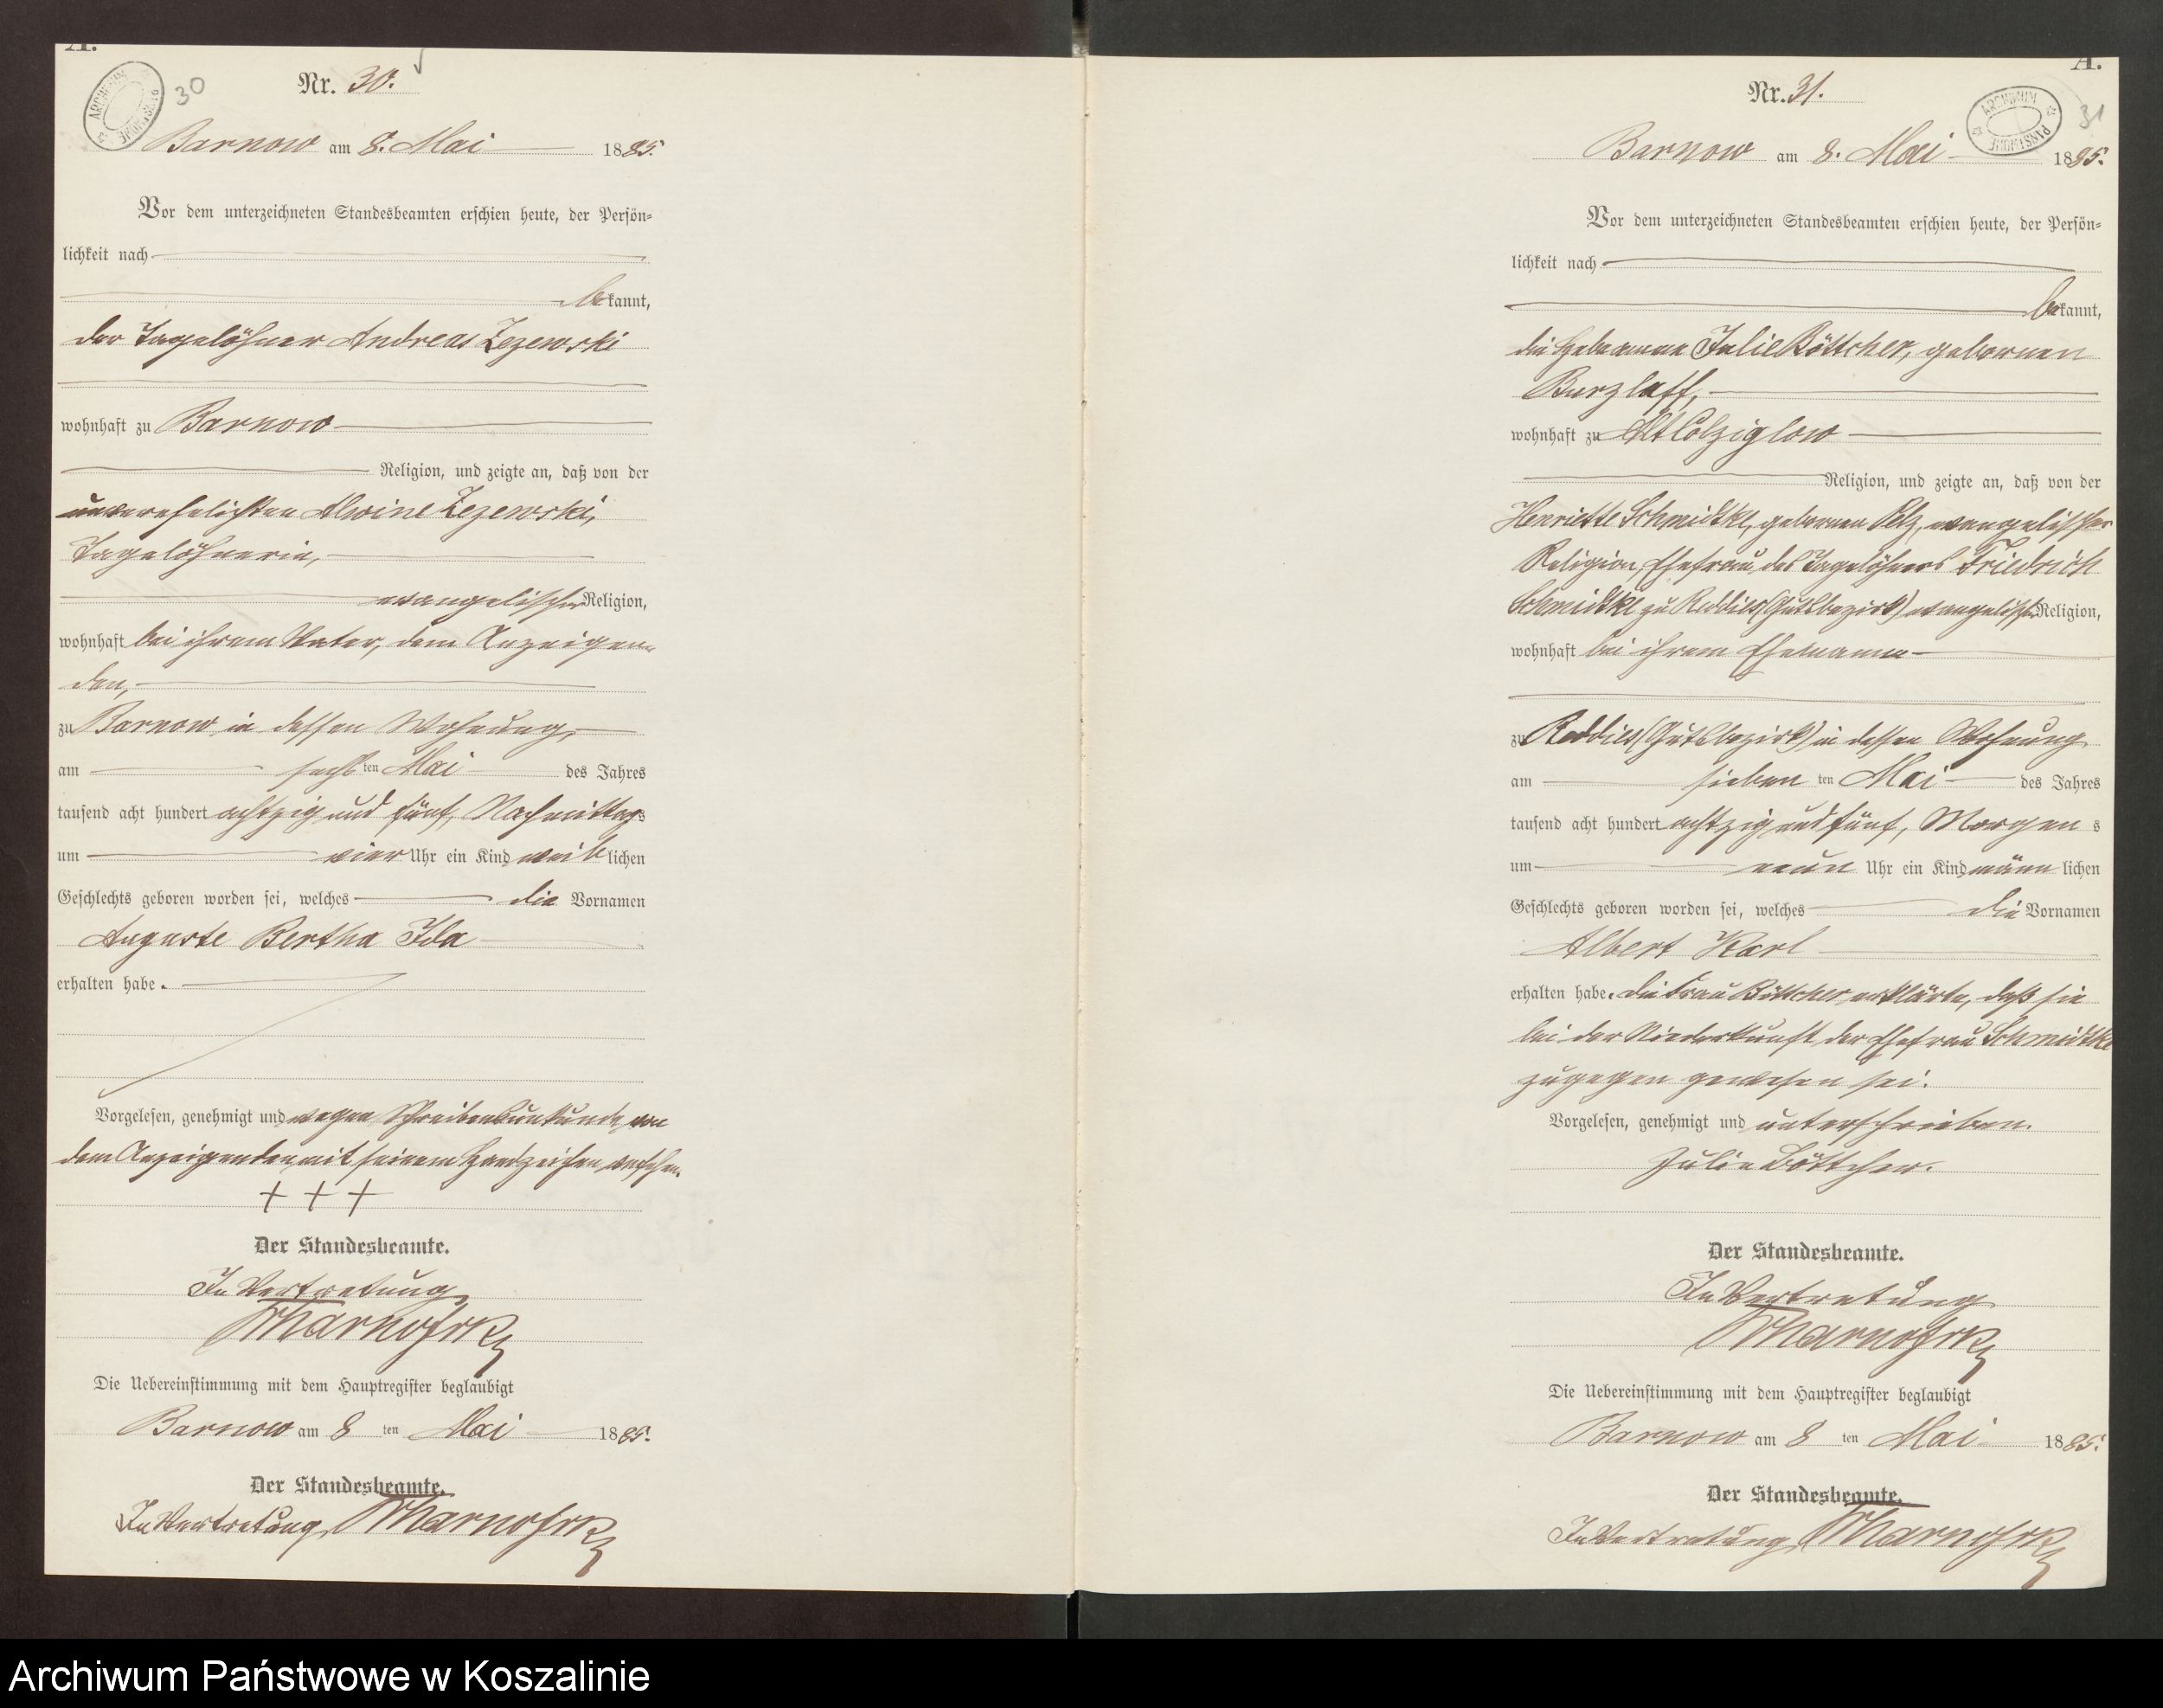 A.
ARCHIWUM PAŃSTWOWE
30
Nr. 30.
Barnow am 8. Mai 1885.
Vor dem unterzeichneten Standesbeamten erschien heute, der Persön-
lichkeit nach
bekannt,
der Tagelöhner Andreas Zezewski
wohnhaft zu Barnow
Religion, und zeigte an, daß von der
unverehelichten Alwine Zezewski,
Tagelöhnerin,
evangelischer Religion,
wohnhaft bei ihrem Vater, dem Anzeigen-
den,
zu Barnow in dessen Wohnung,
am sechsten Mai des Jahres
tausend acht hundert achtzig und fünf, Nachmittags
um vier Uhr ein Kind weiblichen
Geschlechts geboren worden sei, welches die Vornamen
Auguste Bertha Ida
erhalten habe.
Vorgelesen, genehmigt und wegen Schreibensunkunde von
dem Anzeigenden mit seinem Handzeichen versehen.
+ + +
Der Standesbeamte.
In Vertretung
Die Uebereinstimmung mit dem Hauptregister beglaubigt
Barnow am 8 ten Mai 1885.
Der Standesbeamte.
In Vertretung
A.
ARCHIWUM PAŃSTWOWE
31
Nr. 31.
Barnow am 8. Mai 1885.
Vor dem unterzeichneten Standesbeamten erschien heute, der Persön-
lichkeit nach
bekannt,
die Hebamme Julie Böttcher, gebornen
Burzlaff,
wohnhaft zu Alt Colziglow
Religion, und zeigte an, daß von der
Henriette Schmidtke, gebornen Pelz, evangelischer
Religion, Ehefrau des Tagelöhners Friedrich
Schmidtke zu Reddies (Gutsbezirk) evangelischer Religion,
wohnhaft bei ihrem Ehemanne
zu Reddies (Gutsbezirk) in dessen Wohnung
am sieben ten Mai des Jahres
tausend acht hundert achtzig und fünf, Morgens
um neun Uhr ein Kind männlichen
Geschlechts geboren worden sei, welches die Vornamen
Albert Karl
erhalten habe. Die Frau Böttcher erklärte, daß sie
bei der Niederkunft der Ehefrau Schmidtke
zugegen gewesen sei.
Vorgelesen, genehmigt und unterschrieben.
Julie Böttcher.
Der Standesbeamte.
In Vertretung
Die Uebereinstimmung mit dem Hauptregister beglaubigt
Barnow am 8 ten Mai 1885.
Der Standesbeamte.
In Vertretung
Archiwum Państwowe w Koszalinie